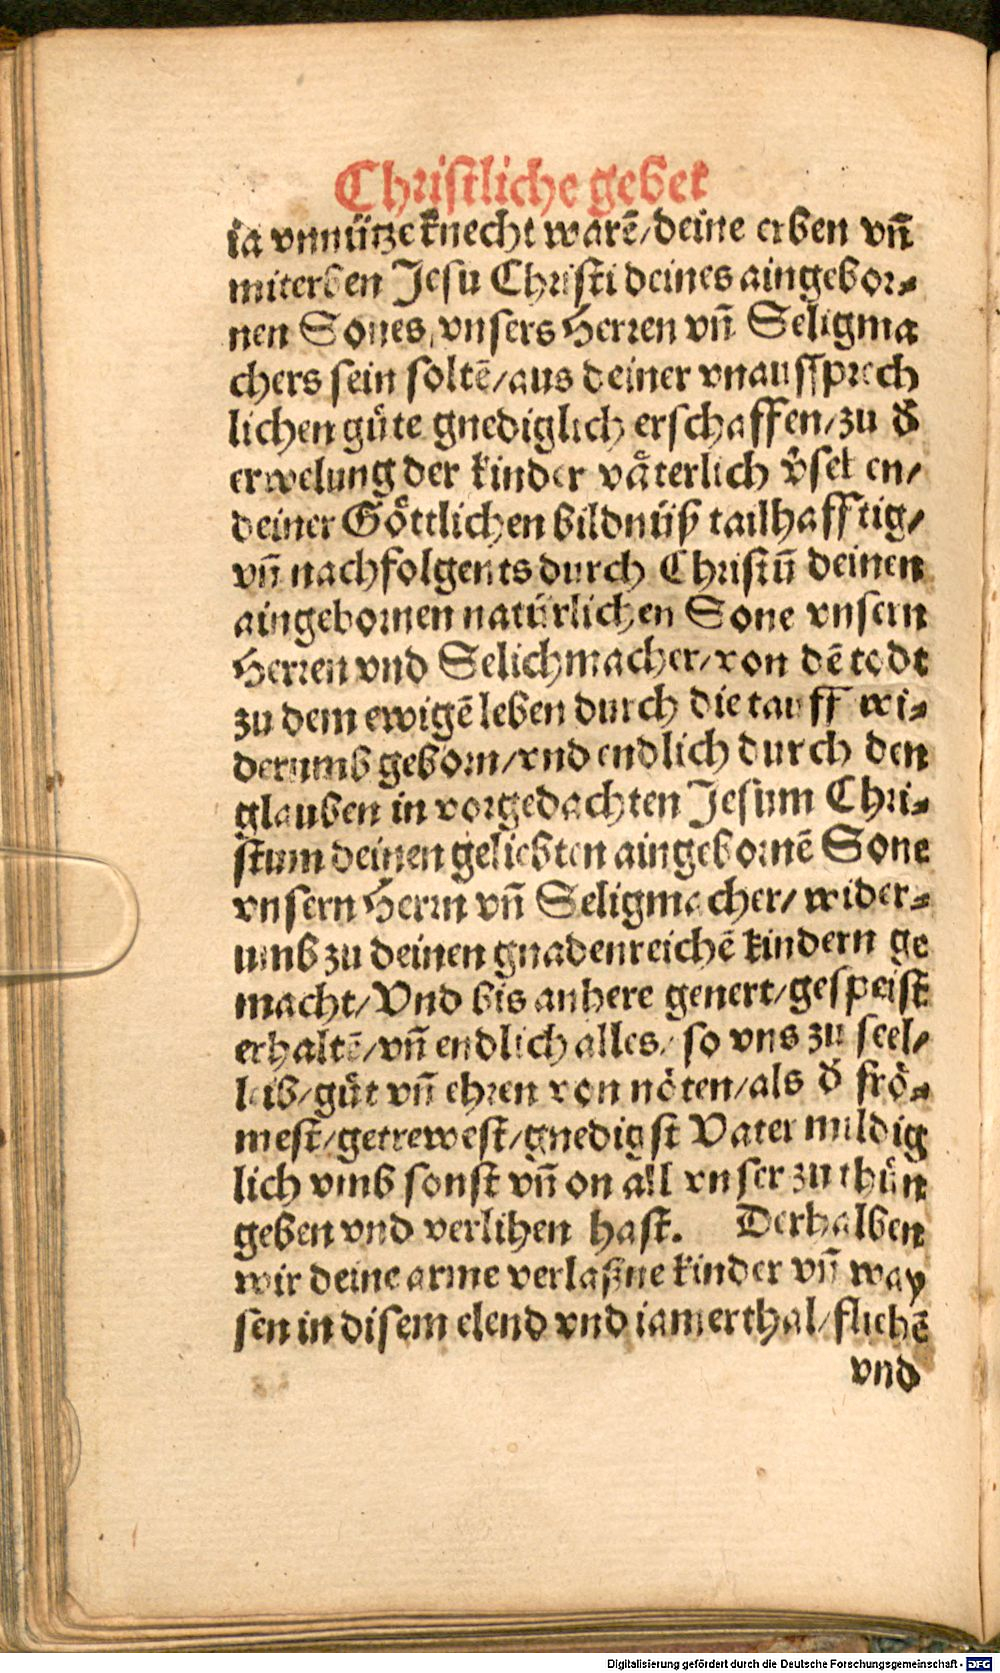 Christliche gebet
ia vnnütze knecht warē/deine erben vñ
miterben Jesu Christi deines aingebor⸗
nen Sones, vnsers Herren vñ Seligma
chers sein soltē/aus deiner vnaussprech
lichen güte gnediglich erschaffen/zu d̄
erwelung der kinder väterlich v̄sehen/
deiner Göttlichen bildnüß tailhafftig/
vñ nachfolgents durch Christū deinen
aingebornen natürlichen Sone vnsern
Herren vnd Selichmacher/von dē todt
zu dem ewigē leben durch die tauff wi⸗
derumb geborn/vnd endlich durch den
glauben in vorgedachten Jesum Chri⸗
stum deinen geliebten aingebornē Sone
vnsern Herrn vñ Seligmacher/wider⸗
umb zu deinen gnadenreichē kindern ge
macht/Vnd bis anhere genert/gespeist
erhaltē/vñ endlich alles/so vns zu seel/
leib/gůt vñ ehren von nöten/als d̄ frö⸗
mest/getrewest/gnedigst Vater mildig
lich vmb sonst vñ on all vnser zu thůn
geben vnd verlihen hast. Derhalben
wir deine arme verlaßne kinder vñ way
sen in disem elend vnd iamerthal/fliehē
vnd
Digitalisierung gefördert durch die Deutsche Forschungsgemeinschaft - DFG